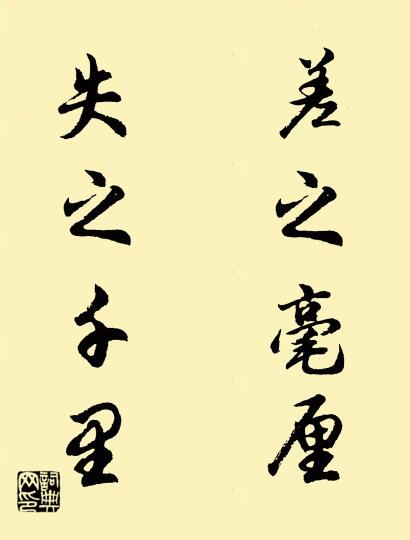 差之毫厘
失之千里
詞典
网印